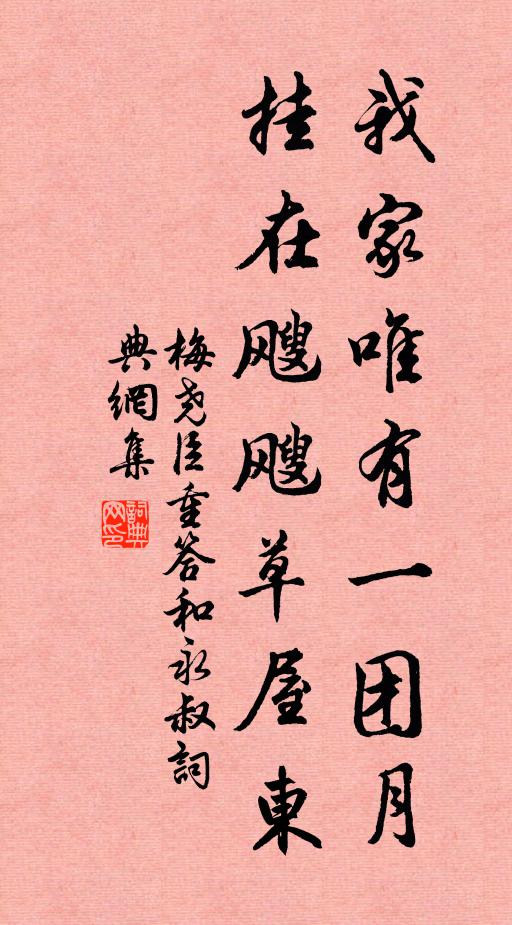 我家唯有一团月
挂在飕飕草屋東
梅尧臣重答和永叔詞
典網集
詞典
网印